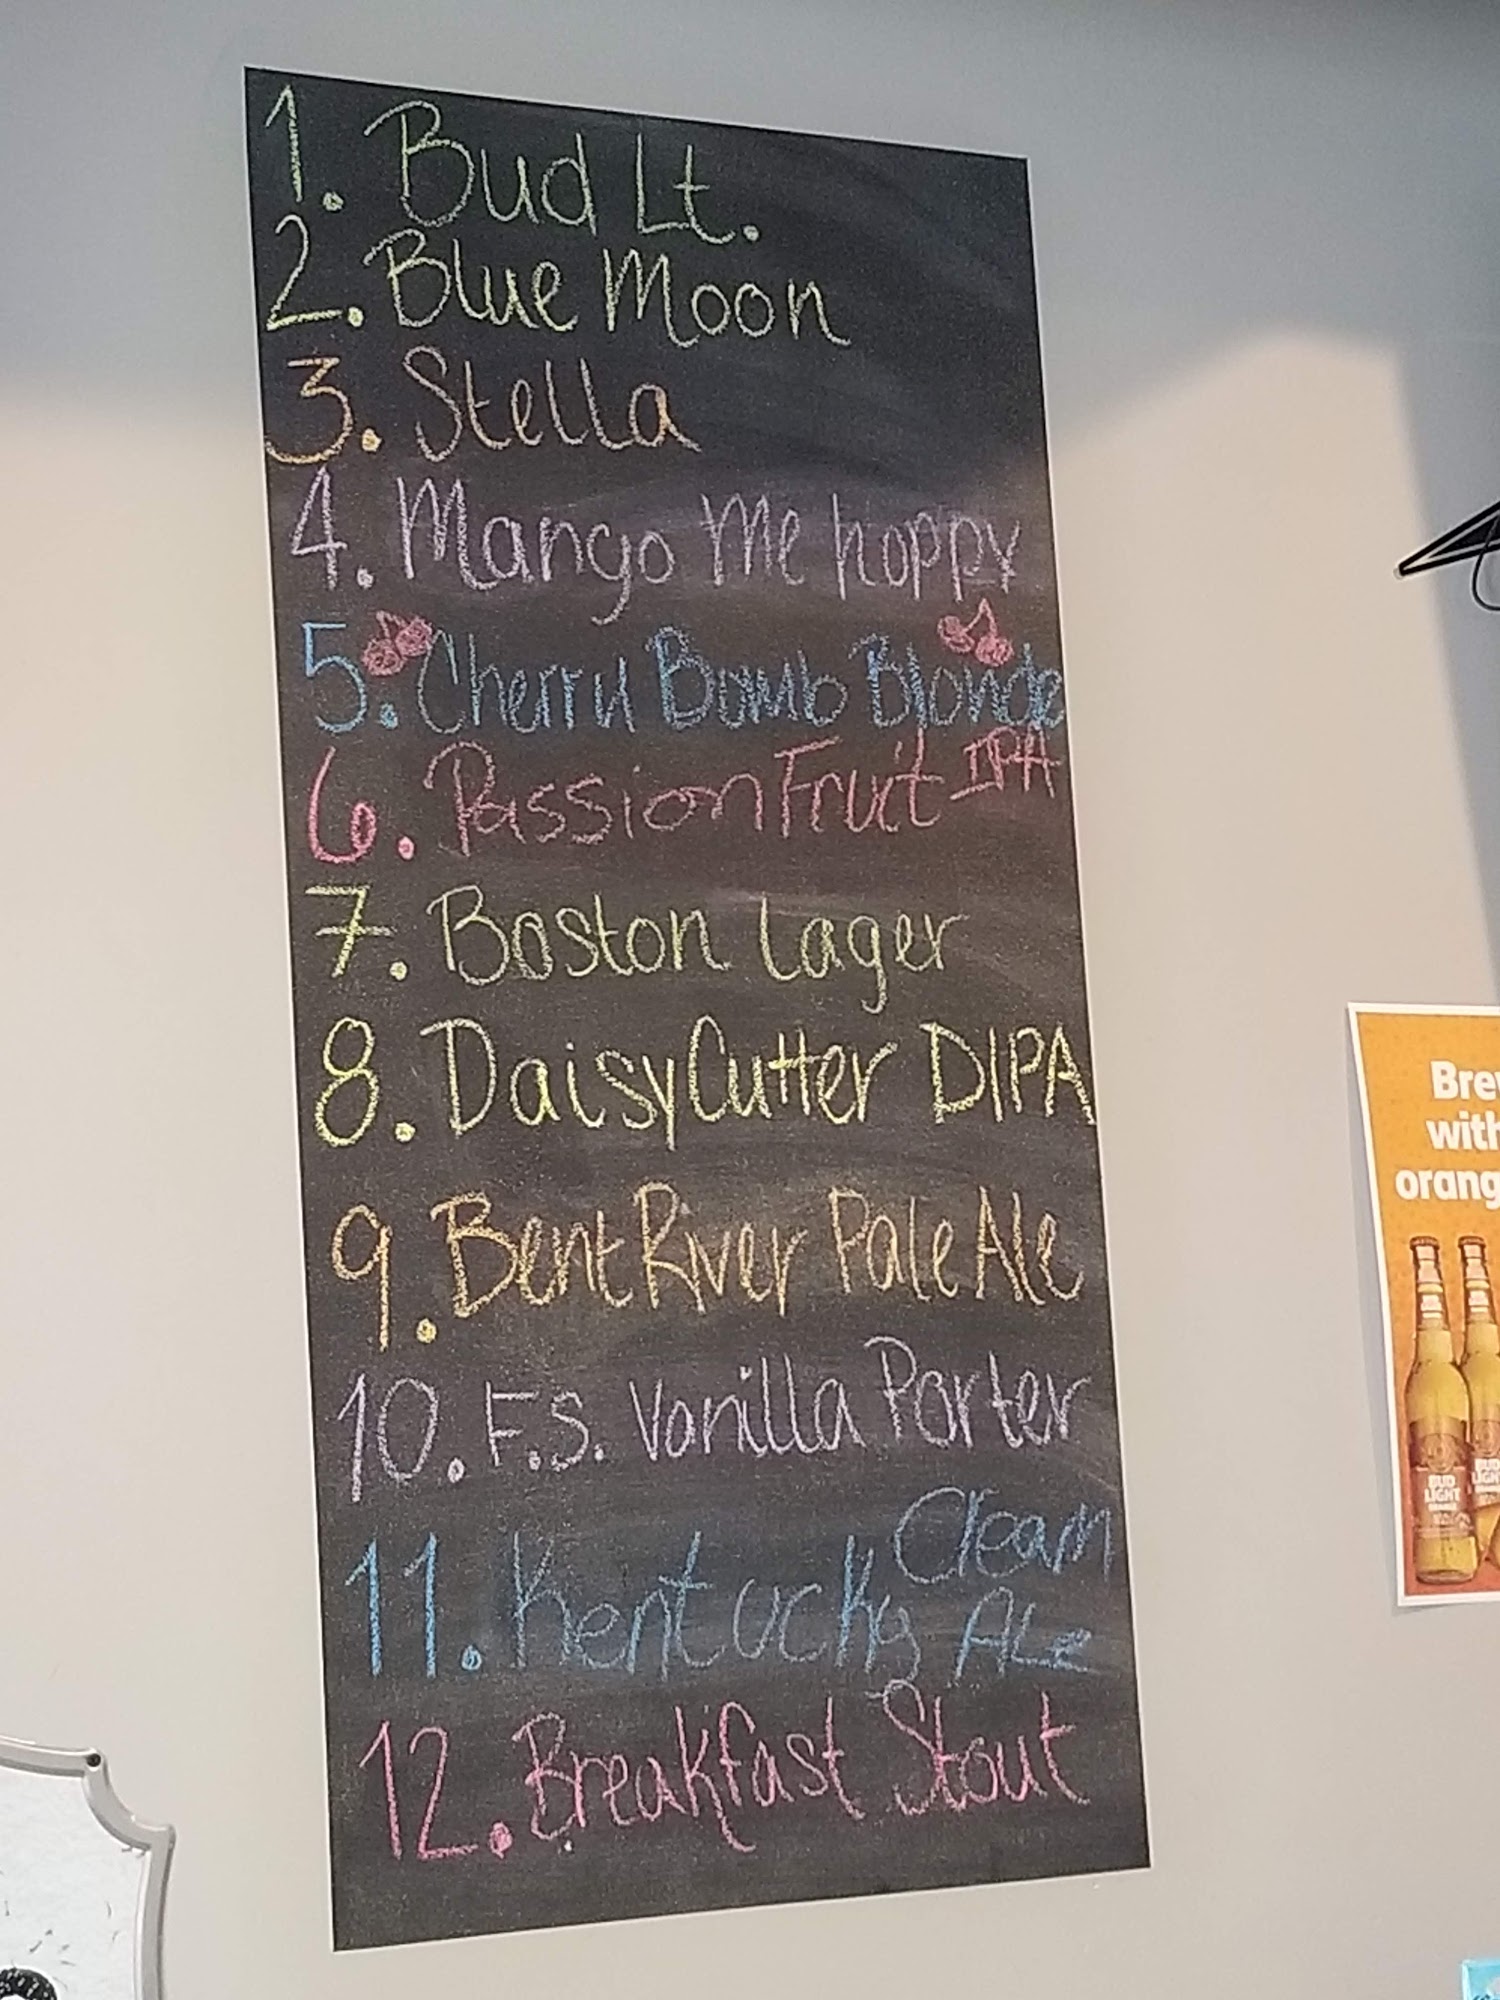 1. Bud Lt.
2. Blue Moon
3. Stella
4. Mango Me hoppy
5. Cherry Bomb Blonde
6. Passion Fruit IPA
7. Boston Lager
8. Daisy Cutter DIPA
9. Bent River Pale Ale
10. F.S. Vanilla Porter
11. Kentucky Cream Ale
12. Breakfast Stout
with
orang
BUD
LIGHT
BUD
LIGHT